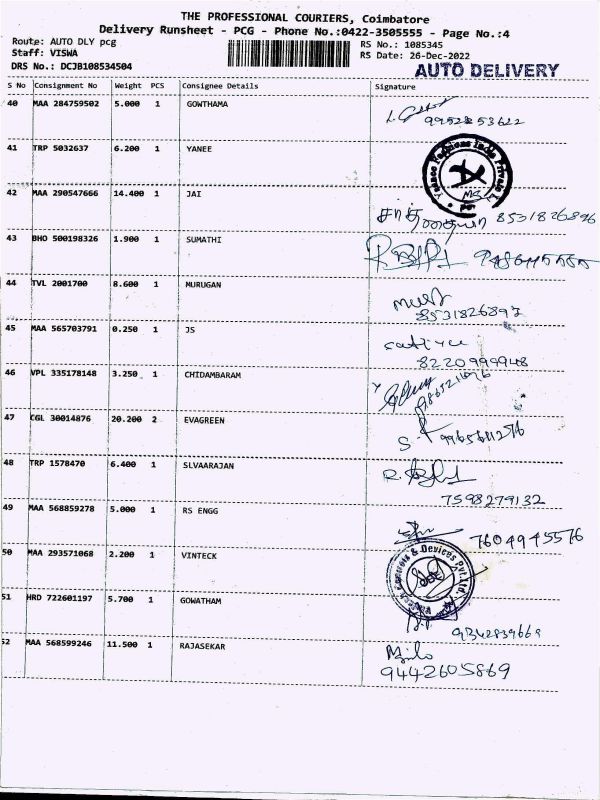 THE PROFESSIONAL COURIERS, Coimbatore
Delivery Runsheet - PCG - Phone No.:0422-3505555 - Page No.:4
Route: AUTO DLY pcg
RS No.: 1085345
Staff: VISWA
RS Date: 26-Dec-2022
DRS No.: DCJB108534504
AUTO DELIVERY
S No Consignment No Weight PCS Consignee Details Signature
40 MAA 284759502 5.000 1 GOWTHAMA
41 TRP 5032637 6.200 1 YANEE
42 MAA 290547666 14.400 1 JAI
8531826896
43 BHO 500198326 1.900 1 SUMATHI
44 TVL 2001700 8.600 1 MURUGAN
45 MAA 565703791 0.250 1 JS
8220999948
46 VPL 335178148 3.250 1 CHIDAMBARAM
47 CGL 30014876 20.200 2 EVAGREEN
48 TRP 1578470 6.400 1 SLVAARAJAN
7598279132
49 MAA 568859278 5.000 1 RS ENGG
7604945576
50 MAA 293571068 2.200 1 VINTECK
51 HRD 722601197 5.700 1 GOWATHAM
52 MAA 568599246 11.500 1 RAJASEKAR
9442605869